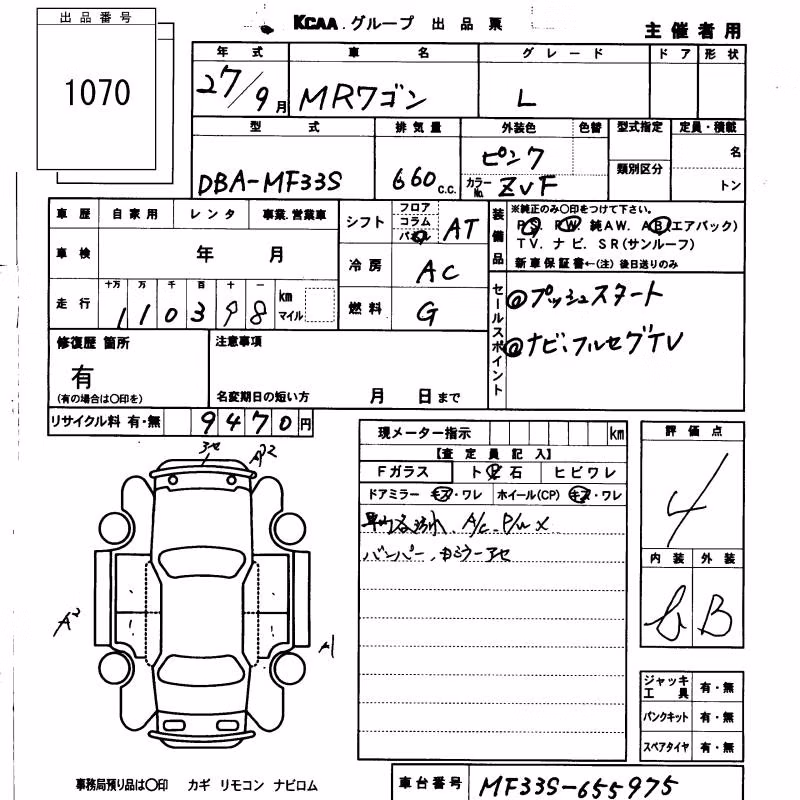 出品番号
1070
KCAA.グループ 出品票
主催者用
年式 車名 グレード ドア 形状
27/9月 MRワゴン L
型式 排気量 外装色 色替 型式指定 定員・積載
DBA-MF33S 660c.c. ピンク 類別区分 名
カラーNo. ZVF トン
車歴 自家用 レンタ 事業.営業車
シフト フロア コラム パネル AT
装備品 ※純正のみ○印をつけて下さい。
PS. PW. 純AW. AB(エアバック)
TV. ナビ. SR(サンルーフ)
新車保証書←(注)後日送りのみ
車検 年 月
冷房 AC
走行 十万 万 千 百 十 一
110398 km マイル
燃料 G
セールスポイント
@プッシュスタート
@ナビ、フルセグTV
修復歴 箇所
有
(有の場合は○印を)
注意事項
名変期日の短い方 月 日まで
リサイクル料 有・無 9470円
現メーター指示 km
評価点
4
【査定員記入】
Fガラス ト ビ 石 ヒビワレ
ドアミラー キズ・ワレ ホイール(CP) キズ・ワレ
A/c.P/W x
バンパー、
内装 外装
B
A2
A2
A1
ジャッキ工具 有・無
パンクキット 有・無
スペアタイヤ 有・無
事務局預り品は○印 カギ リモコン ナビロム
車台番号 MF33S-655975